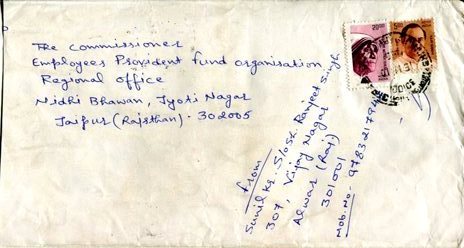 The Commissioner
Employees Provident fund organisation
Regional office
Nidhi Bhawan, Jyoti Nagar
Jaipur (Rajsthan) - 302005
from
Sunil Kr. S/o Sh. Ranjeet Singh
307, Vijay Nagar
Alwar (Raj.)
301001
Mob. No -